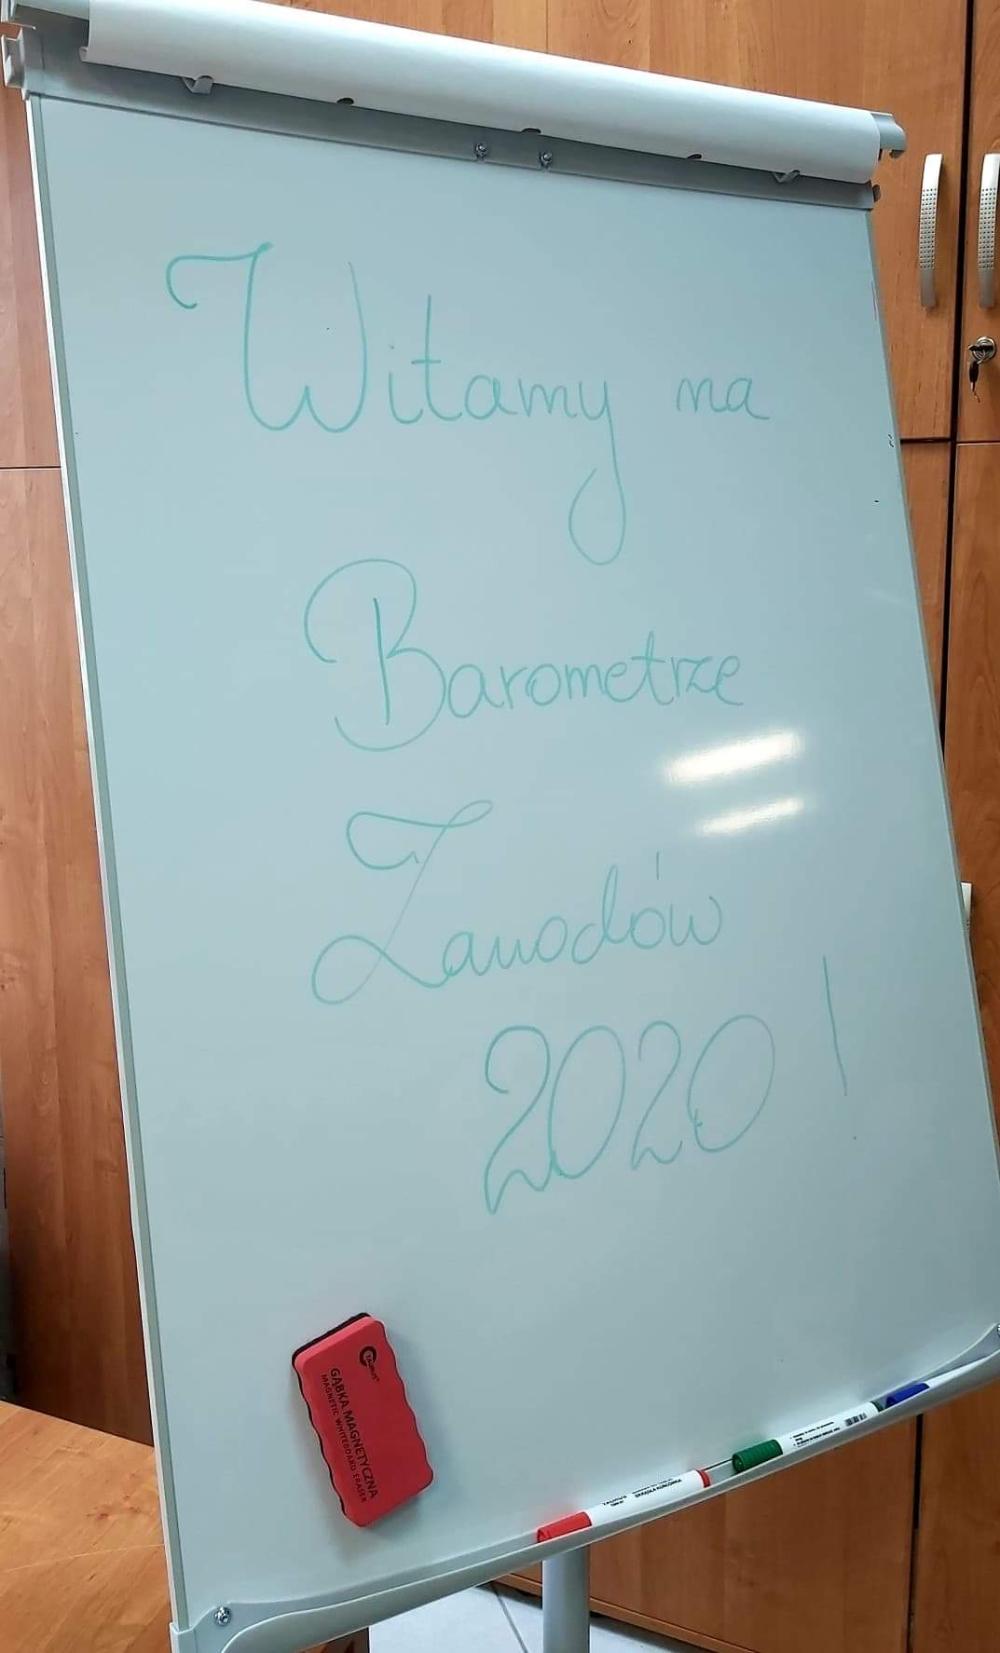 Witamy na
Barometrze
Zawodów
2020!
TAURUS
GĄBKA MAGNETYCZNA
MAGNETIC WHITEBOARD ERASER